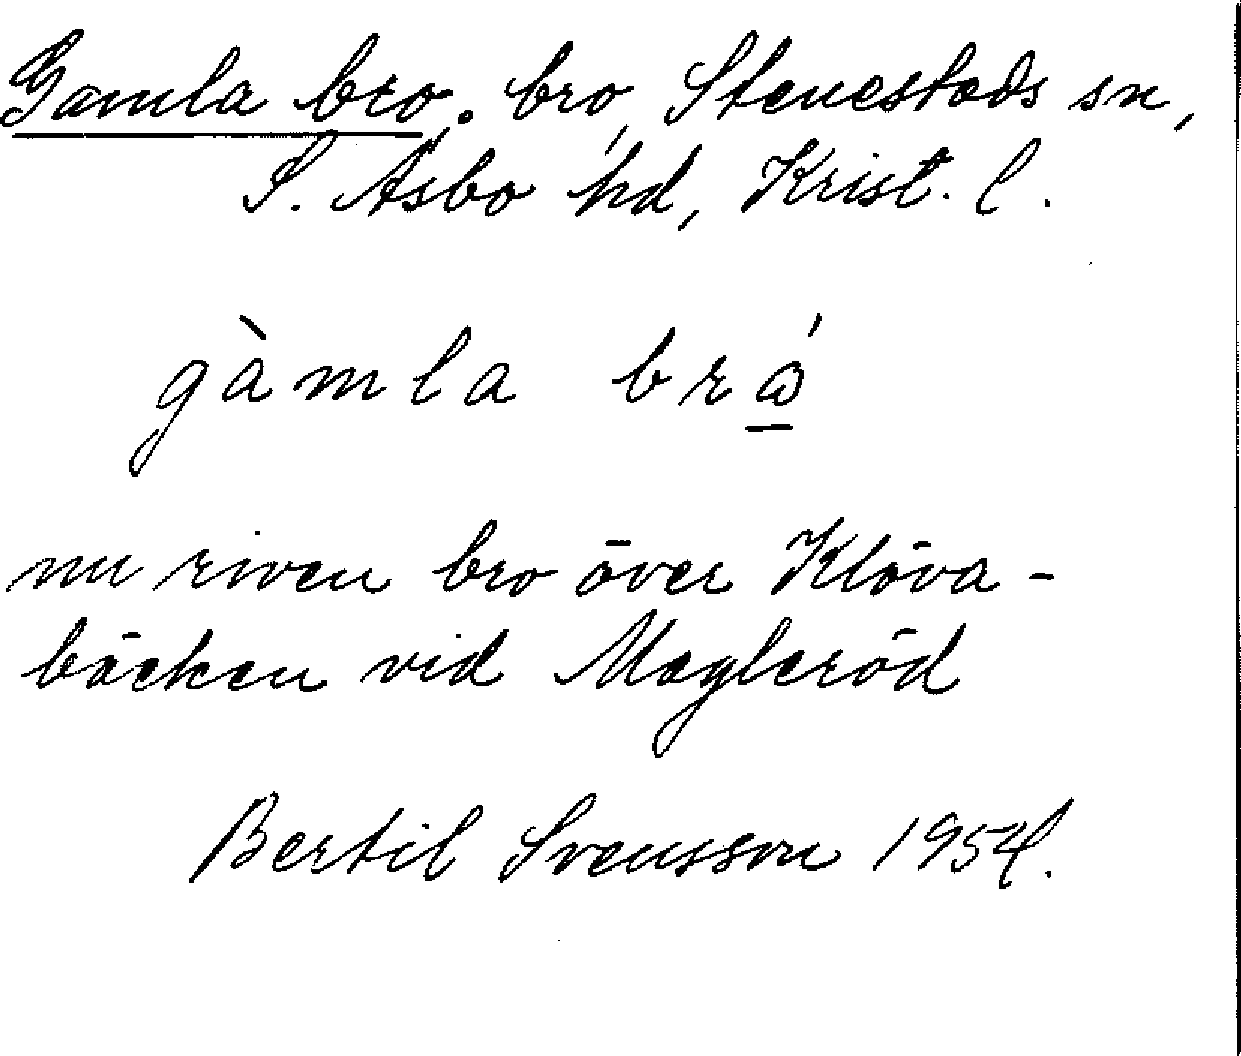 Gamla bro. bro, Stenestads sn,
S. Åsbo hd, Krist. l.
gàmla brǻ
nu riven bro över Klöva-
bäcken vid Magleröd
Bertil Svensson 1954.